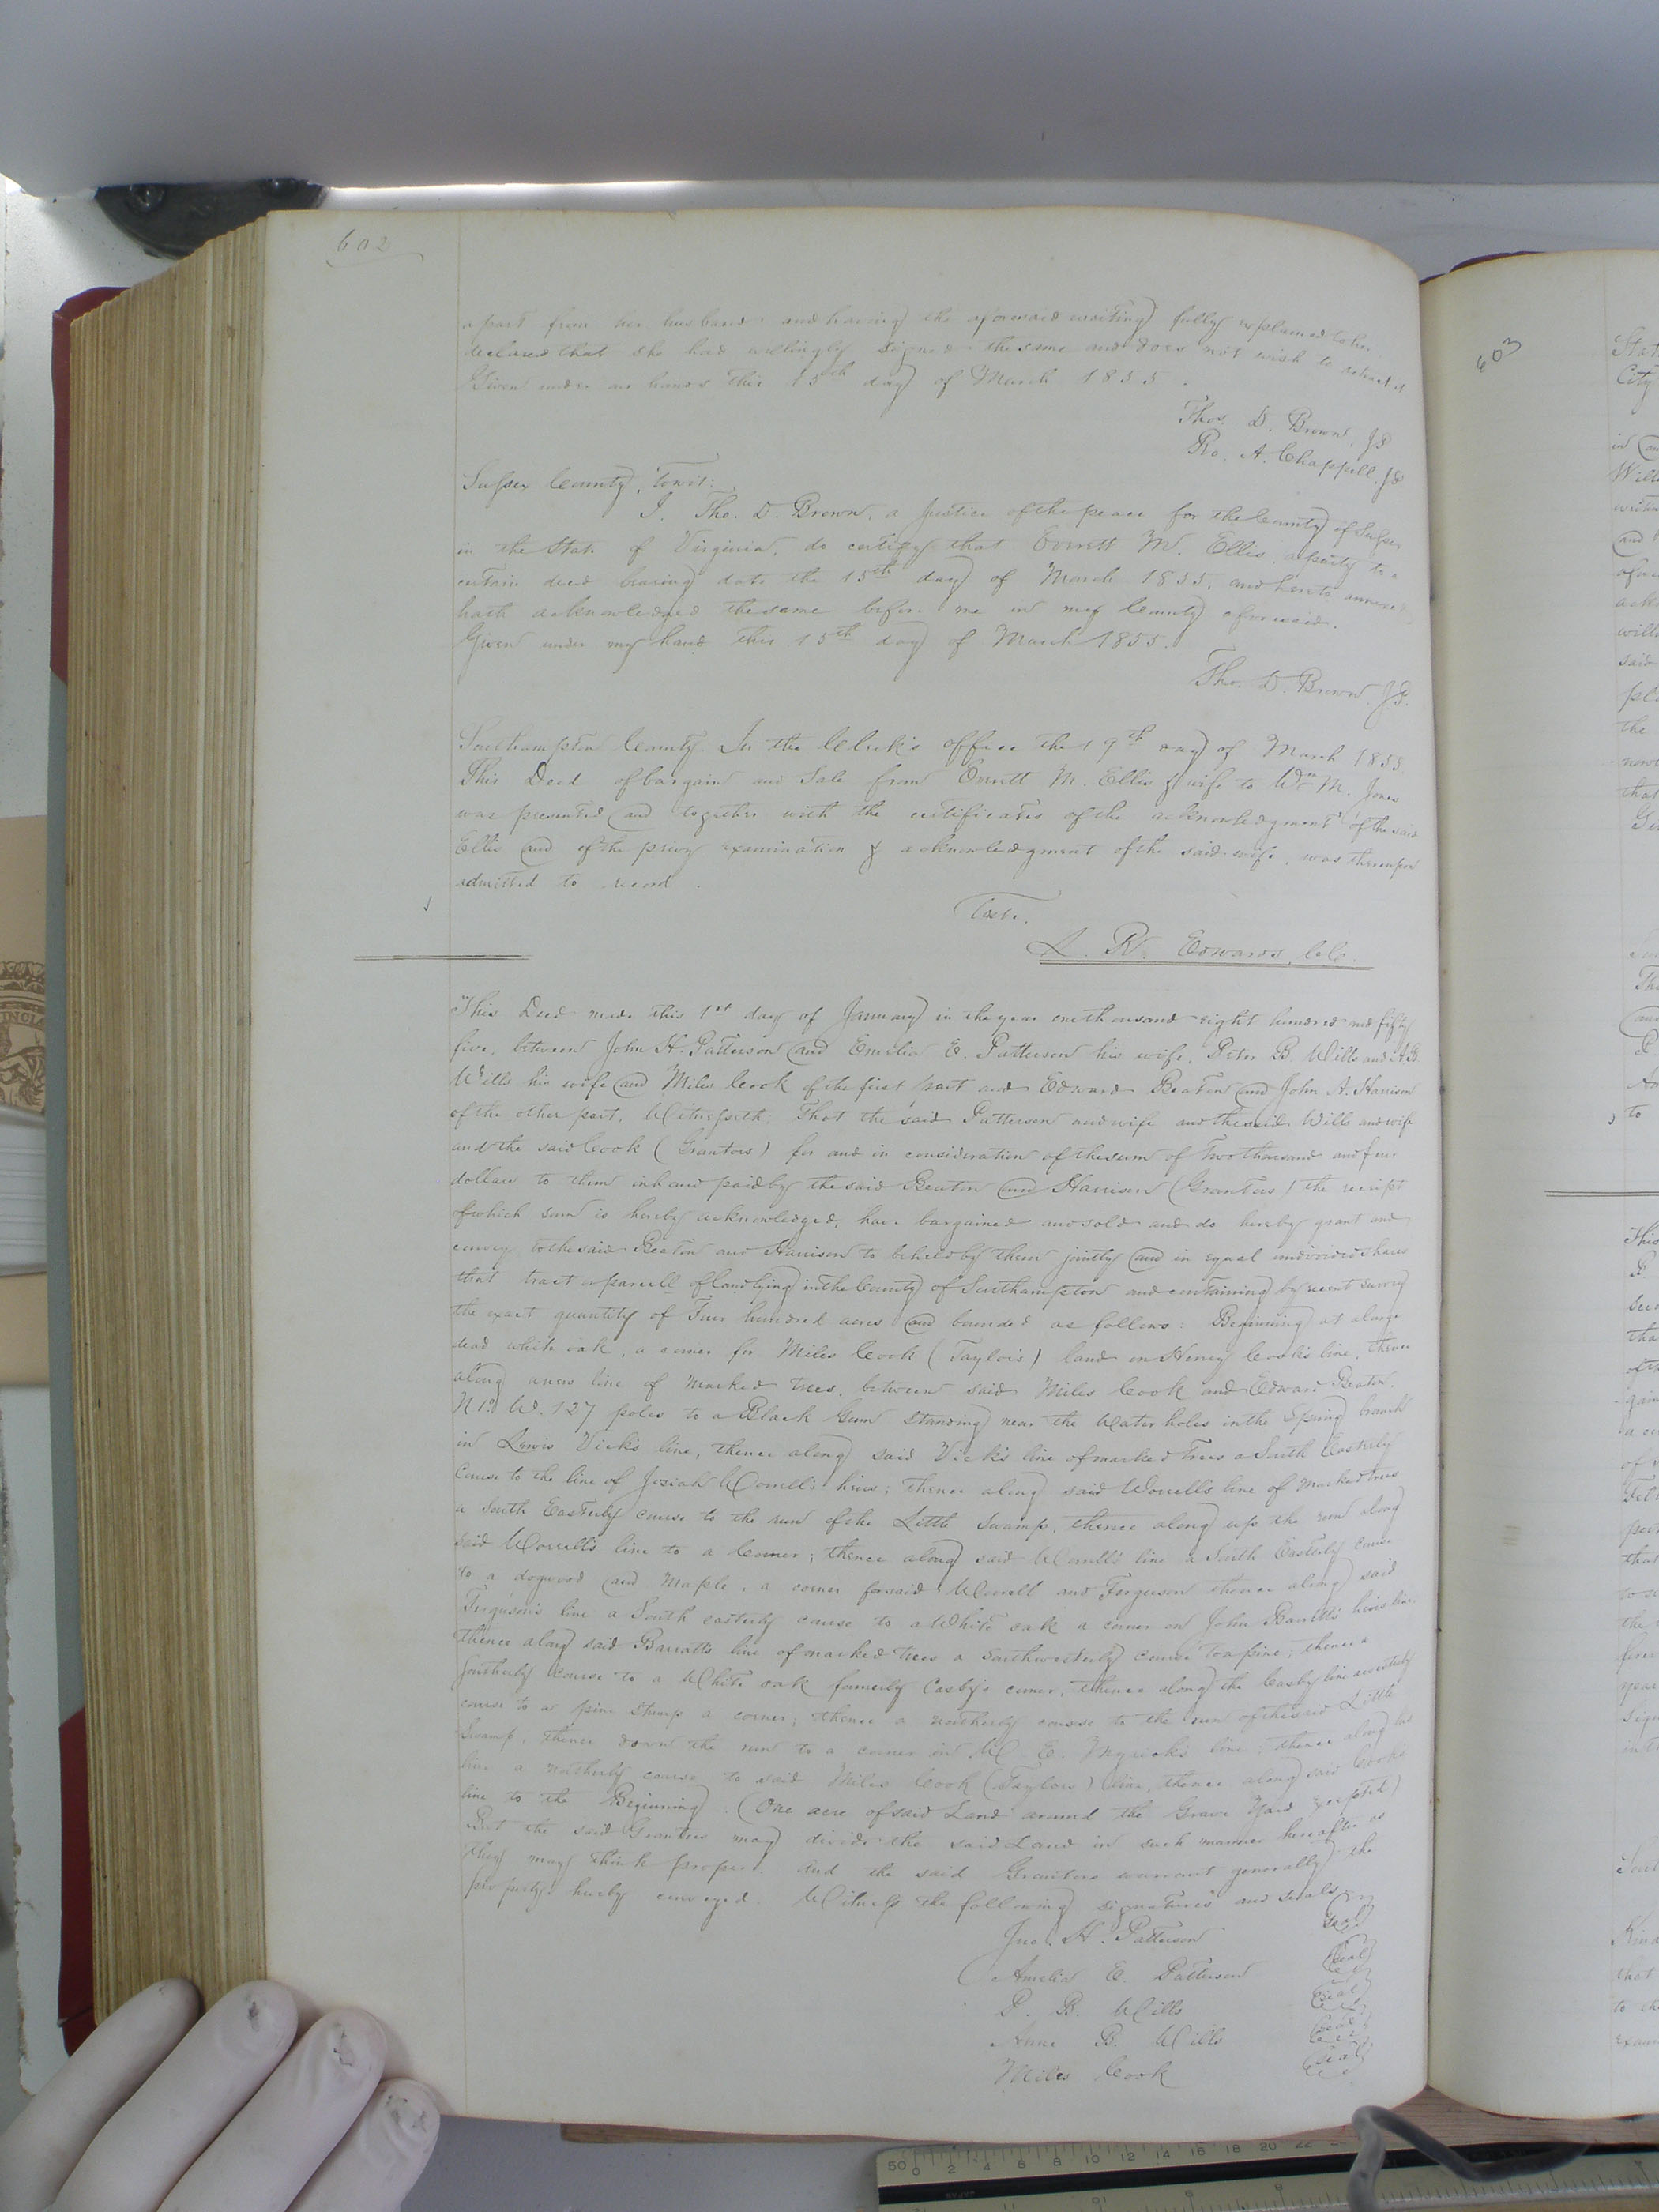 602
apart from her husband and having the aforesaid writing fully explained to her
declared that she had willingly signed the same and does not wish to retract it
Given under our hands this 15th day of March 1855.
Thos. D. Brown, JP
Ro. A. Chappell, JP
Sussex County, Towit:
I, Tho. D. Brown, a Justice of the peace for the County of Sussex
in the State of Virginia, do certify that Everett M. Ellis, a party to a
certain deed bearing date the 15th day of March 1855, and hereto annexed
hath acknowledged the same before me in my County aforesaid.
Given under my hand this 15th day of March 1855.
Tho. D. Brown, JP.
Southampton County. In the Clerk's office the 19th day of March 1855
This Deed of bargain and Sale from Everett M. Ellis & wife to Wm M. Jones
was presented and together with the certificates of the acknowledgment of the said
Ellis and of the privy examination & acknowledgment of the said wife, was thereupon
admitted to record.
Teste.
L. R. Edwards, CC.
This Deed made this 1st day of January in the year one thousand eight hundred and fifty
five, between John H. Patterson and Emelia E. Patterson his wife, Peter B. Wills and A B
Wills his wife and Miles Cook of the first part and Edward Beaton and John A. Harrison
of the other part, Witnesseth: That the said Patterson and wife and the said Wills and wife
and the said Cook (Grantors) for and in consideration of the sum of Two thousand and four
dollars to them in hand paid by the said Beaton and Harrison (Grantees) the receipt
of which sum is hereby acknowledged, have bargained and sold and do hereby grant and
convey to the said Beaton and Harrison to be held by them jointly and in equal undivided shares
that tract or parcell of land lying in the County of Southampton and containing by recent survey
the exact quantity of Four hundred acres and bounded as follows: Beginning at a large
dead white oak, a corner for Miles Cook (Taylors) land on Henry Cook's line, thence
along a new line of marked trees, between said Miles Cook and Edward Beaton.
N 1° W. 127 poles to a Black Gum standing near the Water holes in the Spring branch
in Lewis Vick's line, thence along said Vick's line of marked trees a South Easterly
Course to the line of Josiah Worrell's heirs; thence along said Worrell's line of marked trees
a South Easterly course to the run of the Little Swamp, thence along up the run along
said Worrell's line to a Corner; thence along said Worrell's line a South Easterly course
to a dogwood and Maple, a corner for said Worrell and Ferguson thence along said
Ferguson's line a South easterly course to a White oak a corner on John Barrett's heirs line
thence along said Barratt's line of marked trees a southwesterly course to a pine, thence a
Southerly course to a White oak formerly Casby's corner, thence along the Casby line a westerly
course to a pine stump a corner; thence a northerly course to the run of the said Little
Swamp, thence down the run to a corner in W. E. Myrick's line; thence along his
line a northerly course to said Miles Cook (Taylors) line, thence along said Cook's
line to the Beginning. (One acre of said Land around the Grave Yard excepted)
But the said Grantees may divide the said Land in such manner hereafter as
they may think proper. And the said Grantors warrant generally the
property hereby conveyed. Witness the following signatures and seals.
Jno. H. Patterson Seal
Amelia E. Patterson Seal
P. B. Wills Seal
Anne B. Wills Seal
Miles Cook Seal
603
State
City
in
said
the
that
to
This
that
the
that
50 0 2 4 6 8 10 12 14 16 18 20 22